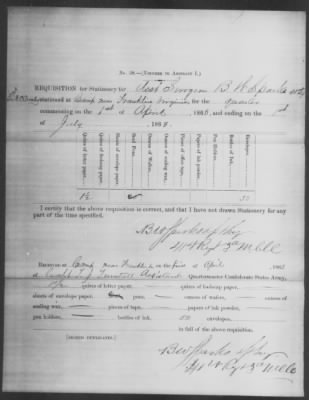 No. 38.—(VOUCHER TO ABSTRACT L.)
REQUISITION for Stationery for Asst Surgeon B. W. Sparks
stationed at Camp near Franklin Virginia for the quarter
commencing on the 1st of April, 1863, and ending on the 1st
of July, 1863.
Quires of letter paper.
Quires of foolscap paper.
Sheets of envelope paper.
Steel Pens.
Ounces of Wafers.
Ounces of sealing wax.
Pieces of office tape.
Papers of ink powder.
Pen Holders.
Bottles of Ink.
Envelopes.
50
I certify that the above requisition is correct, and that I have not drawn Stationery for any
part of the time specified.
B W Sparks
RECEIVED at Camp near Franklin on the first of April, 1863
of Capt
Assistant Quartermaster Confederate States Army,
quires of letter paper, quires of foolscap paper,
sheets of envelope paper, pens, ounces of wafers, ounces of
ending wax, pieces of tape, papers of powder,
pen holders, bottles of ink. 50 envelopes,
in full of the above requisition.
B W Sparks
[SIGNED DUPLICATES.]